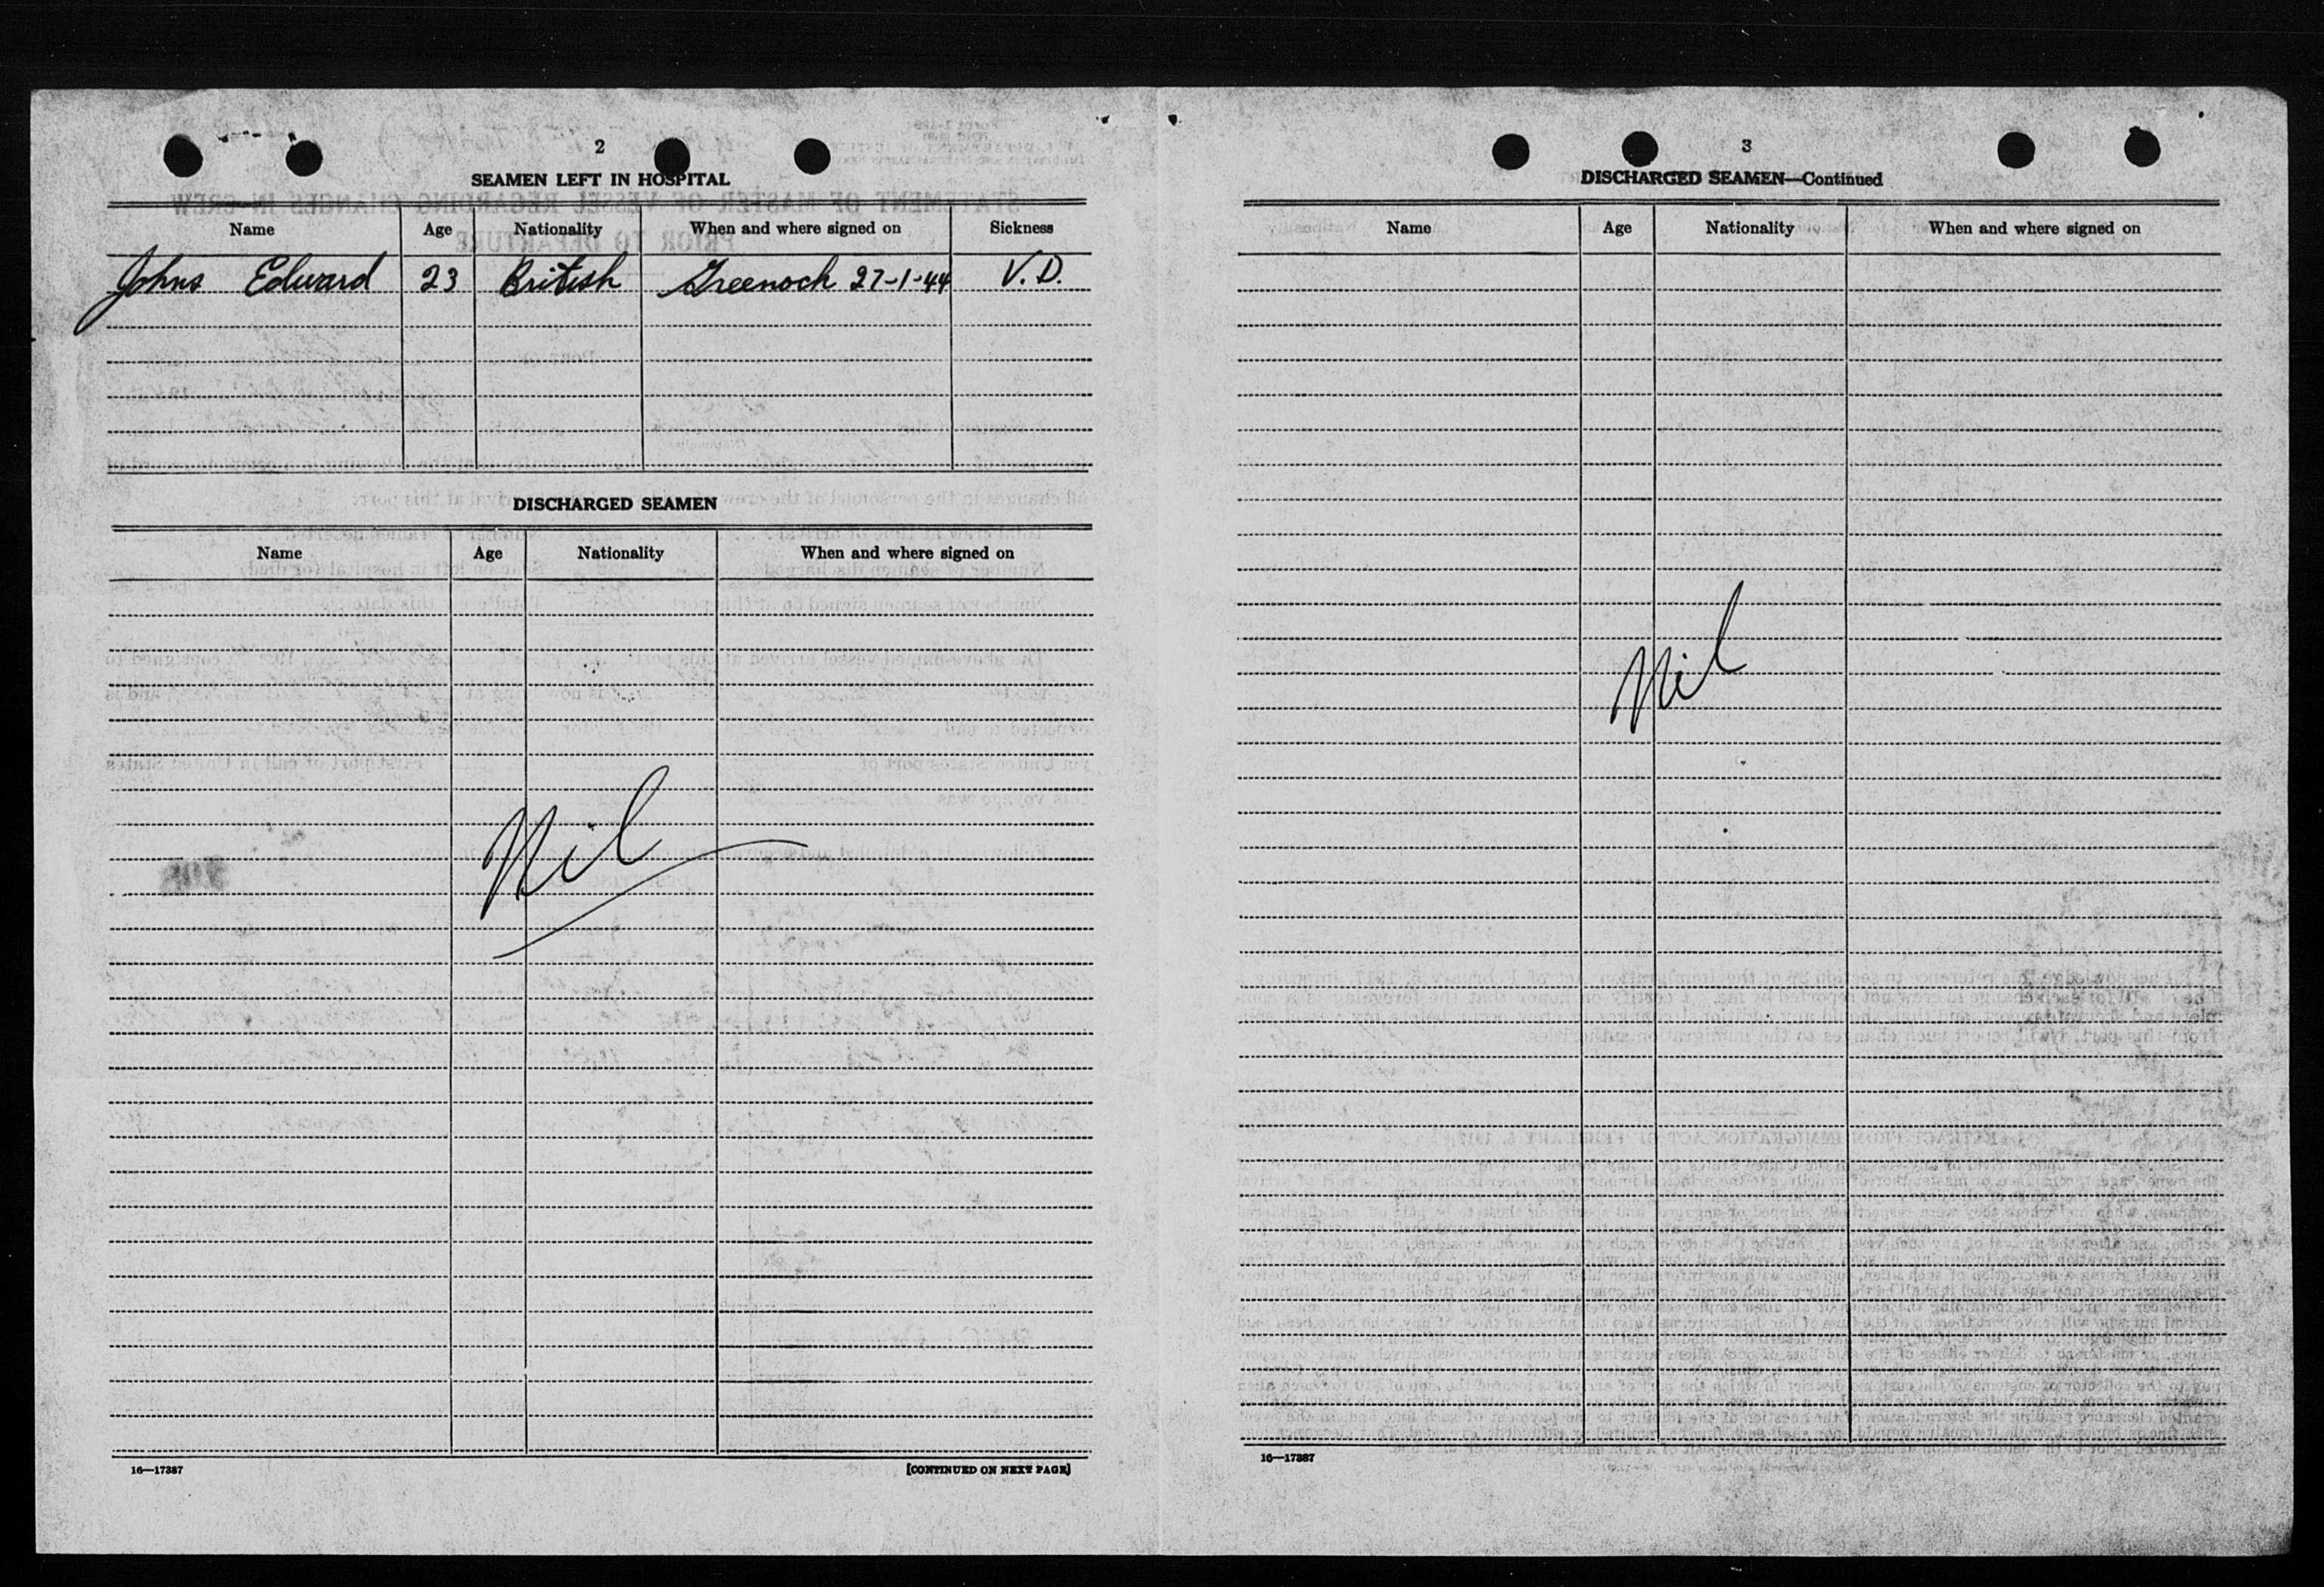 2
SEAMEN LEFT IN HOSPITAL
Name Age Nationality When and where signed on Sickness
Johns Edward 23 British Greenock 27-1-44 V.D.
DISCHARGED SEAMEN
Name Age Nationality When and where signed on
Nil
16—17387 [CONTINUED ON NEXT PAGE]
3
DISCHARGED SEAMEN—Continued
Name Age Nationality When and where signed on
Nil
16—17387